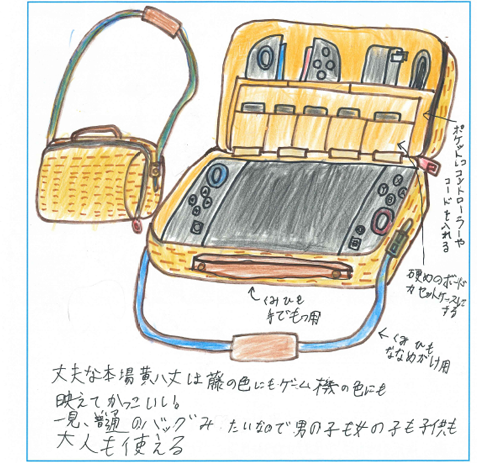 ポケットにコントローラーや
コードを入れる
硬めのボードで
カセットケースにする
くみひも
手でもつ用
くみひも
ななめがけ用
丈夫な本場黄八丈は藤の色にもゲーム機の色にも
映えてかっこいい。
一見、普通のバッグみたいなので男の子も女の子も子供も
大人も使える